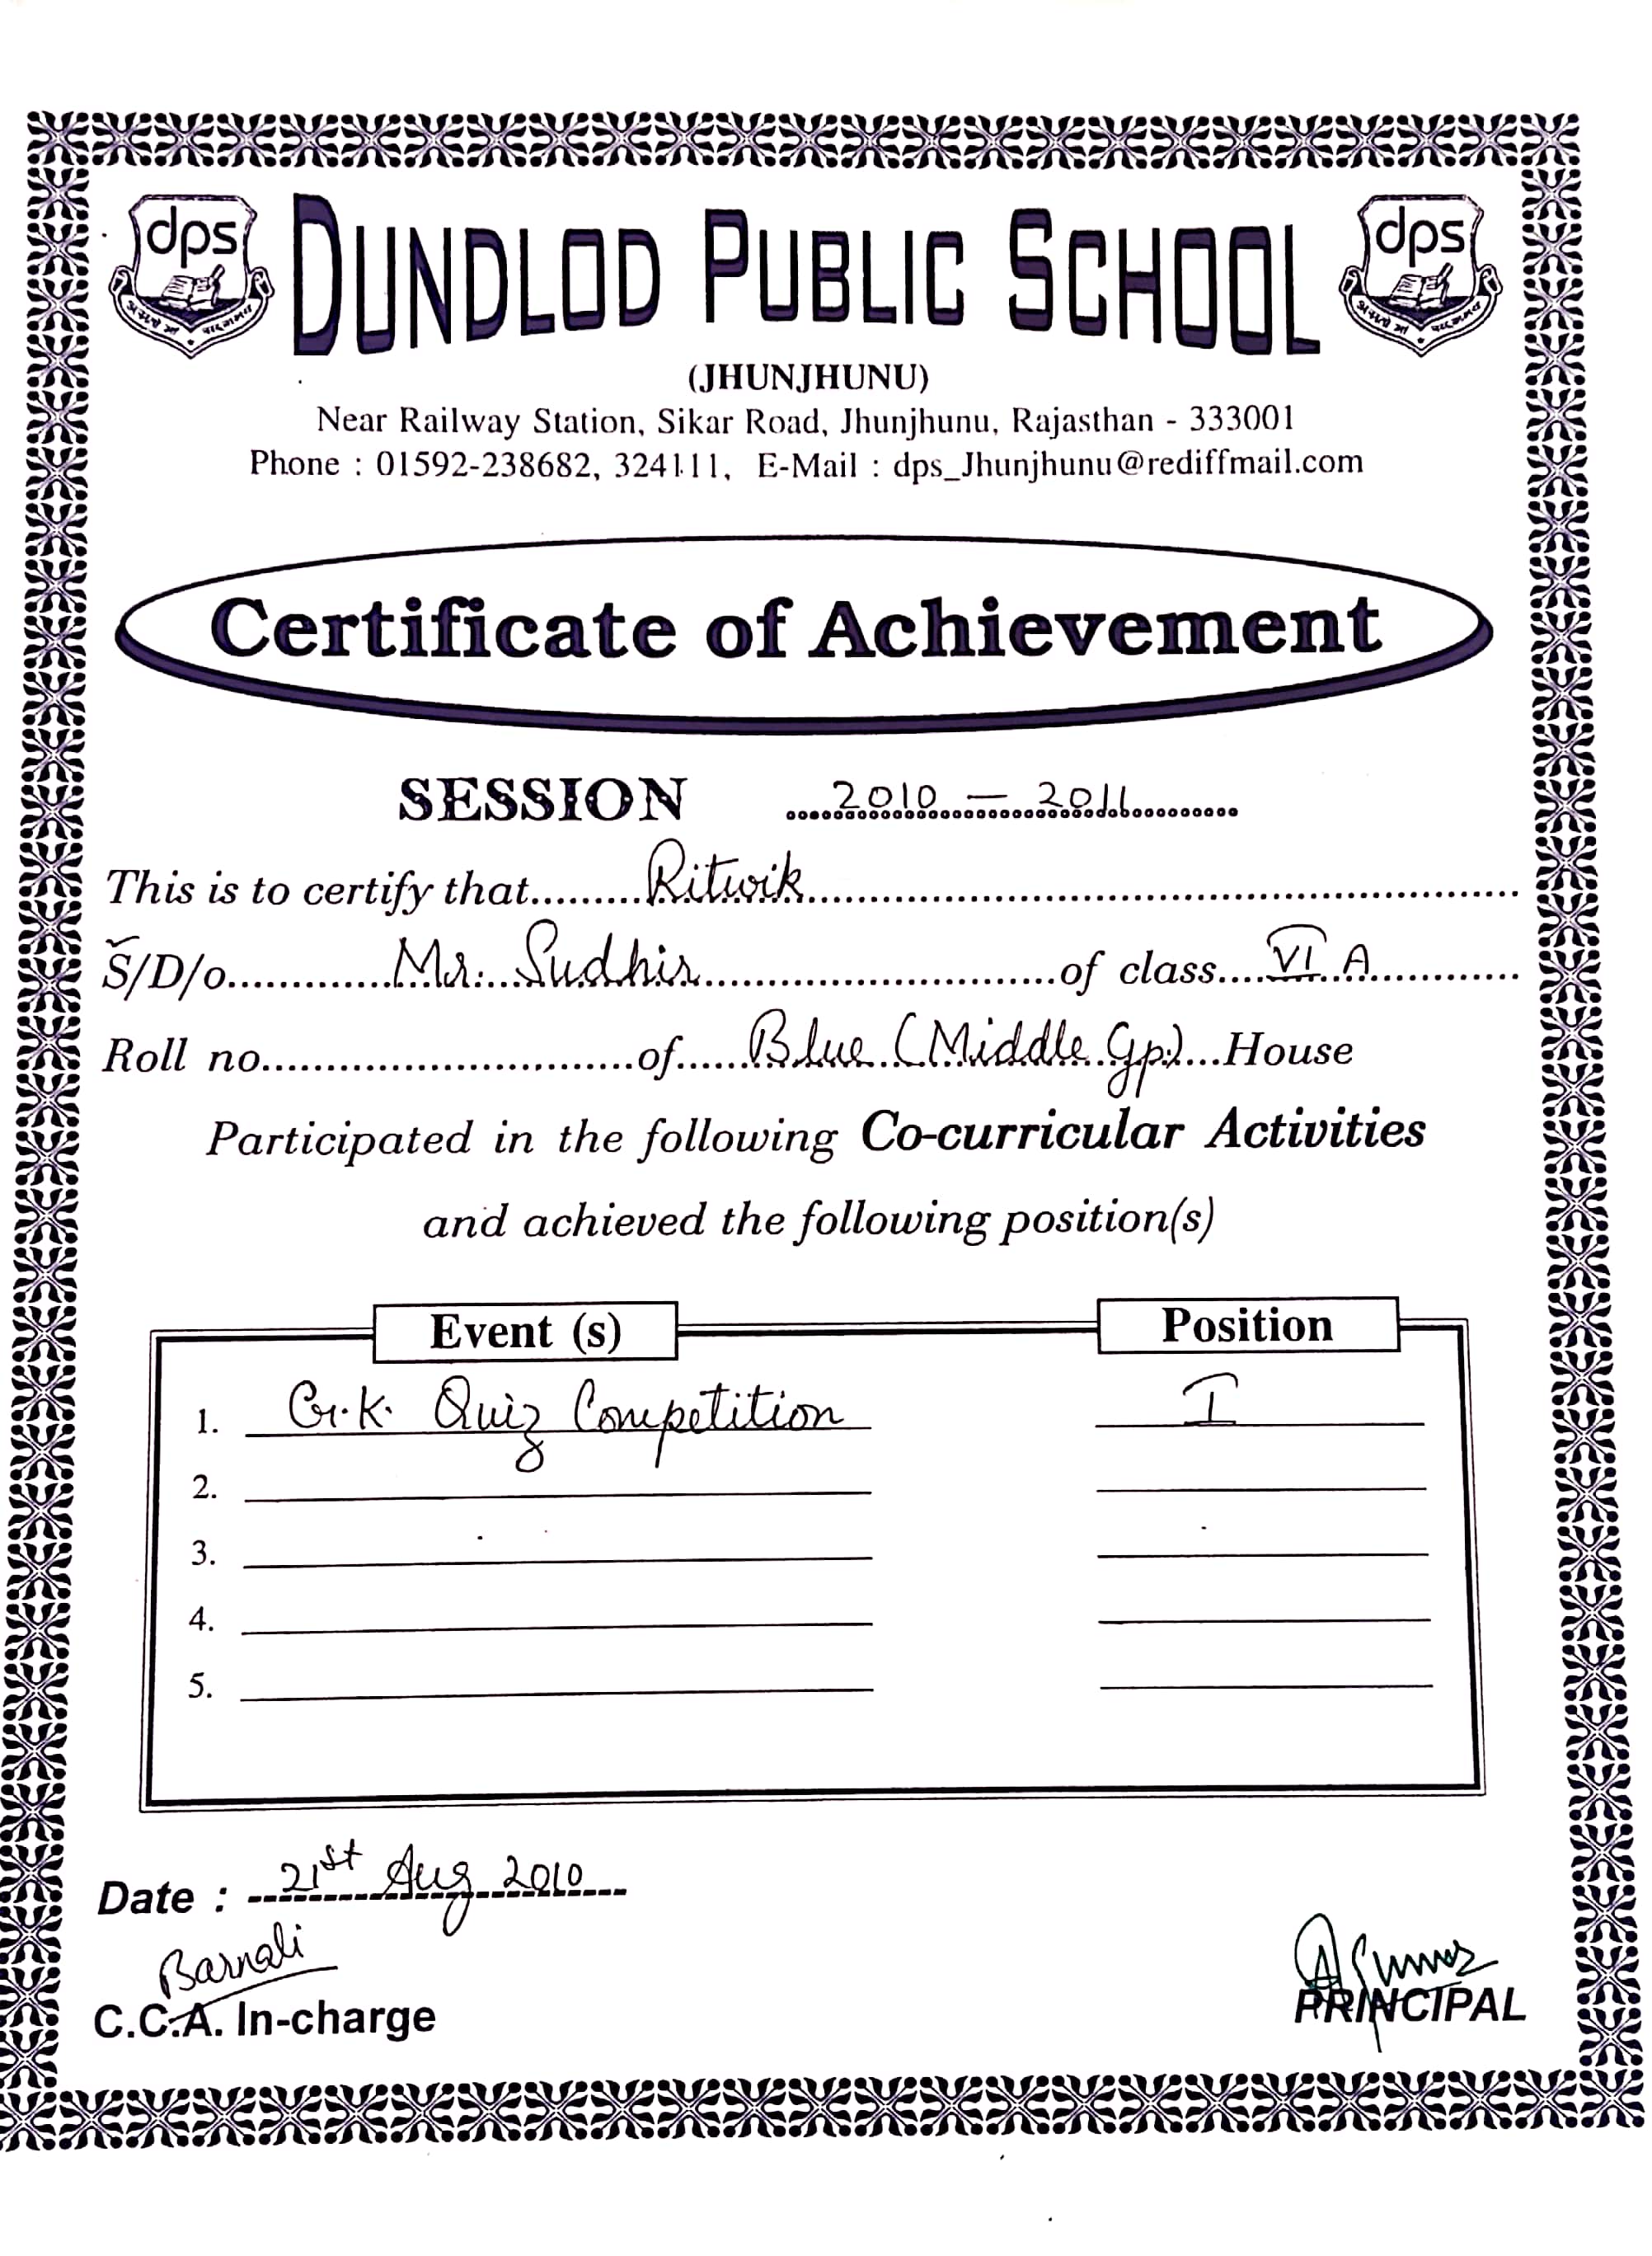 dps DUNDLOD PUBLIC SCHOOL dps
(JHUNJHUNU)
Near Railway Station, Sikar Road, Jhunjhunu, Rajasthan - 333001
Phone : 01592-238682, 324111, E-Mail : dps_Jhunjhunu@rediffmail.com
Certificate of Achievement
SESSION 2010 — 2011
This is to certify that Ritwik
S/D/o Mr. Sudhir of class VI A
Roll no. of Blue (Middle Gp.) House
Participated in the following Co-curricular Activities
and achieved the following position(s)
Event (s) Position
1. G.K. Quiz Competition I
2.
3.
4.
5.
Date : 21st Aug 2010
Barnali
C.C.A. In-charge PRINCIPAL